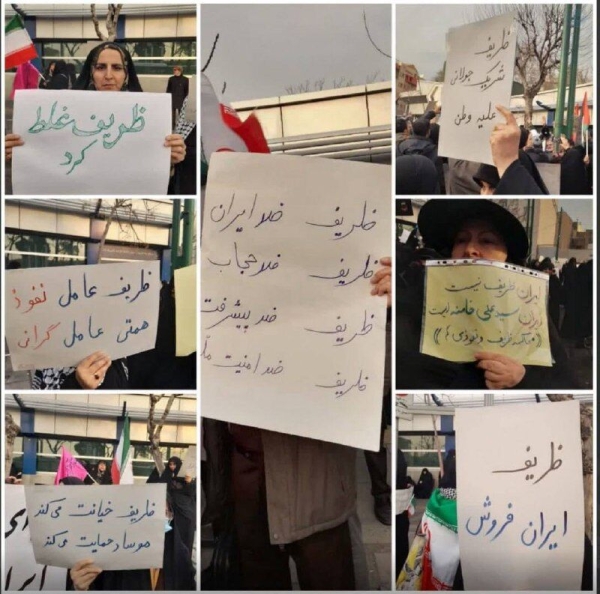 ظریف غلط
کرد
ظریف
شریک جولانی
علیه وطن
ظریف ضد ایران
ظریف ضد حجاب
ظریف ضد پیشرفت
ظریف ضد امنیت
ظریف عامل نفوذ
همتی عامل گرانی
ایران ظریف نیست
ایران سید علی خامنه‌ایست
ظریف خیانت می‌کند
موساد حمایت می‌کند
ظریف
ایران فروش